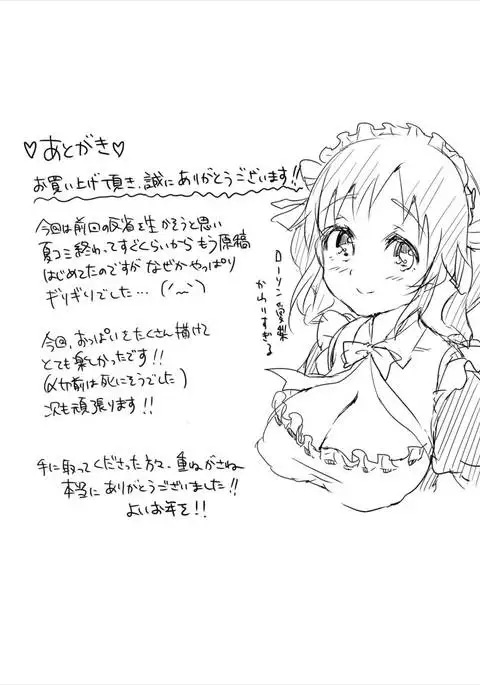 ♡あとがき♡
お買い上げ頂き、誠にありがとうございます!!
今回は前回の反省を生かそうと思い
夏コミ終わってすぐくらいからもう原稿
はじめてたのですが なぜかやっぱり
ギリギリでした…
今回、おっぱいをたくさん描けて
とても楽しかったです!!
(〆切前は死にそうでした)
次も頑張ります!!
手に取ってくださった方々、重ねがさね
本当にありがとうございました!!
よいお年を!!
ローソン
かわいすぎる